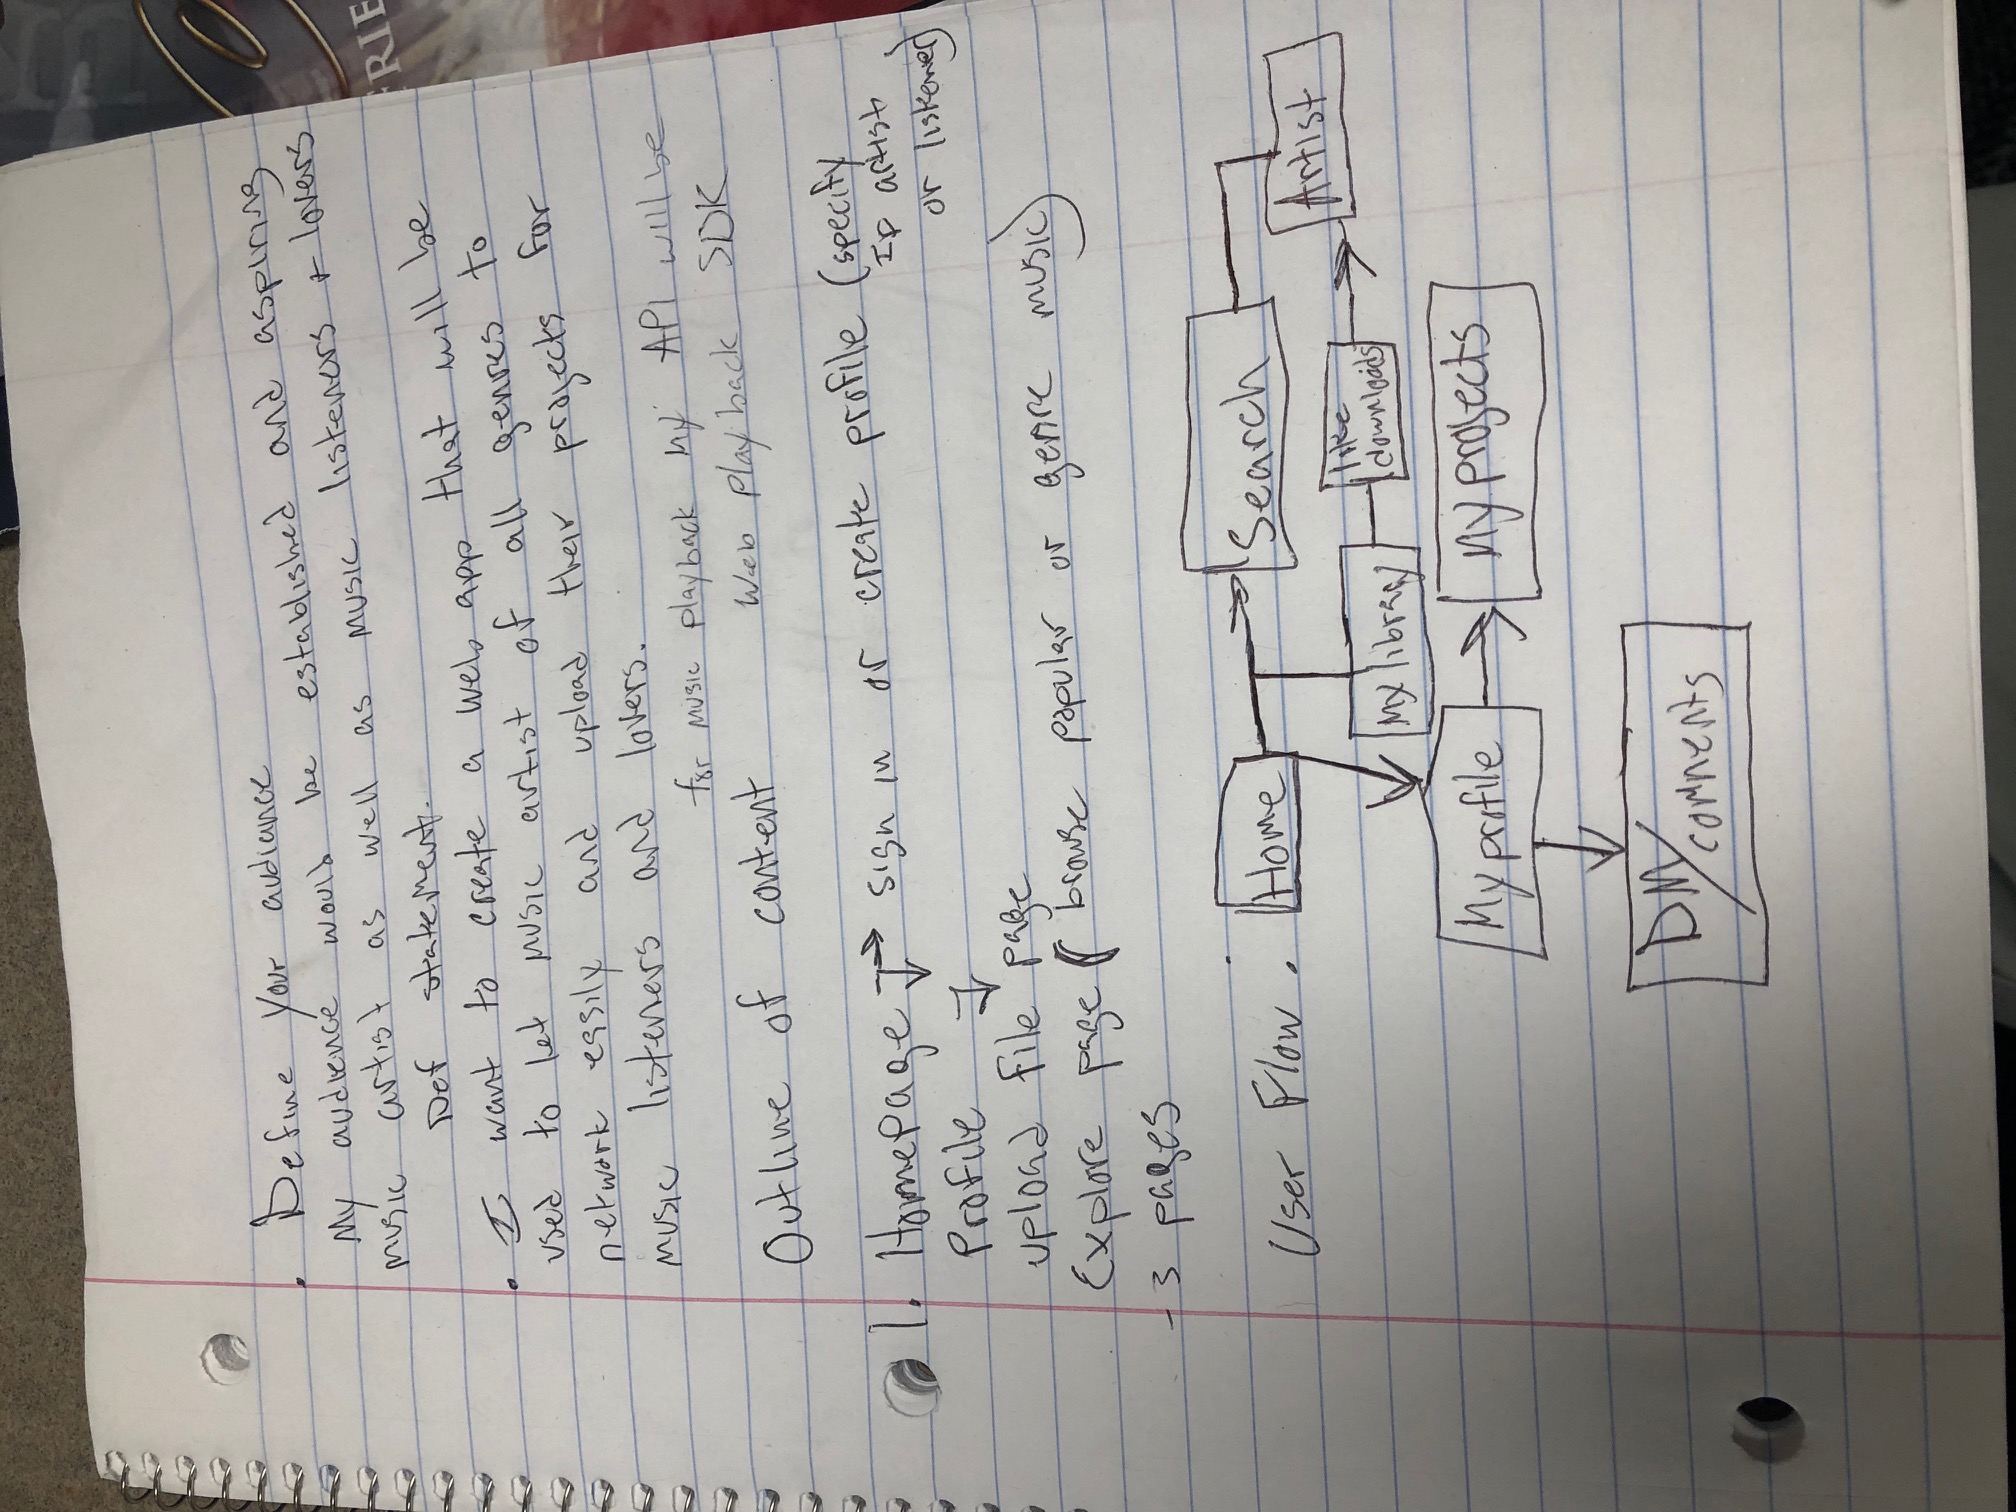 . Define Your audiance
My audience would be established and aspiring
music artist as well as music listeners + lovers
Def statement.
. I want to create a web app that will be
used to let music artist of all genres to
network easily and upload their projects for
music listeners and lovers.
for music playback my API will be
Web playback SDK
Outline of content
1. Homepage → sign in or create profile (specify
If artist
or listener)
Profile
upload file page
Explore page ( browse popular or genre music)
- 3 pages
User Flow .
Home
Search
Artist
My library
like
downloads
My profile
My projects
DM/
comments
FRIE